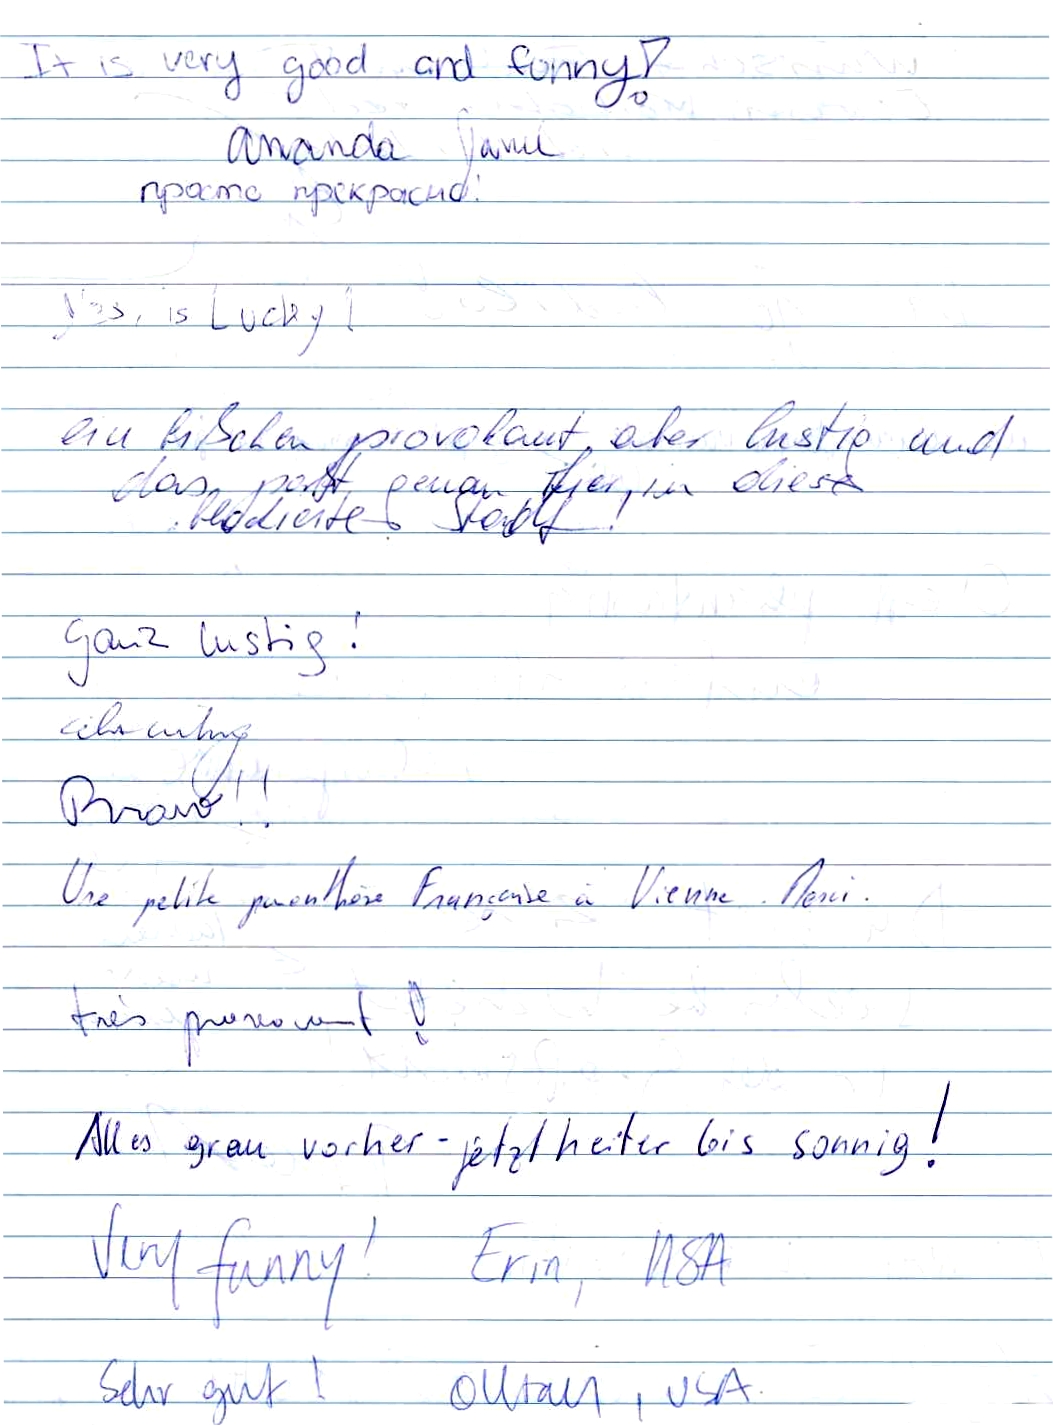 It is very good and fonny!
Amanda
просто прекрасно!
Yes, is Lucky!
ein bißchen provokant, aber lustig und
das paßt genau hier, in diese
Stadt!
Ganz lustig!
Bravo!!
Une petite parenthèse Française à Vienne. Merci.
très provocant!
Alles grau vorher - jetzt heiter bis sonnig!
Very funny! Erin, USA
Sehr gut! , USA.